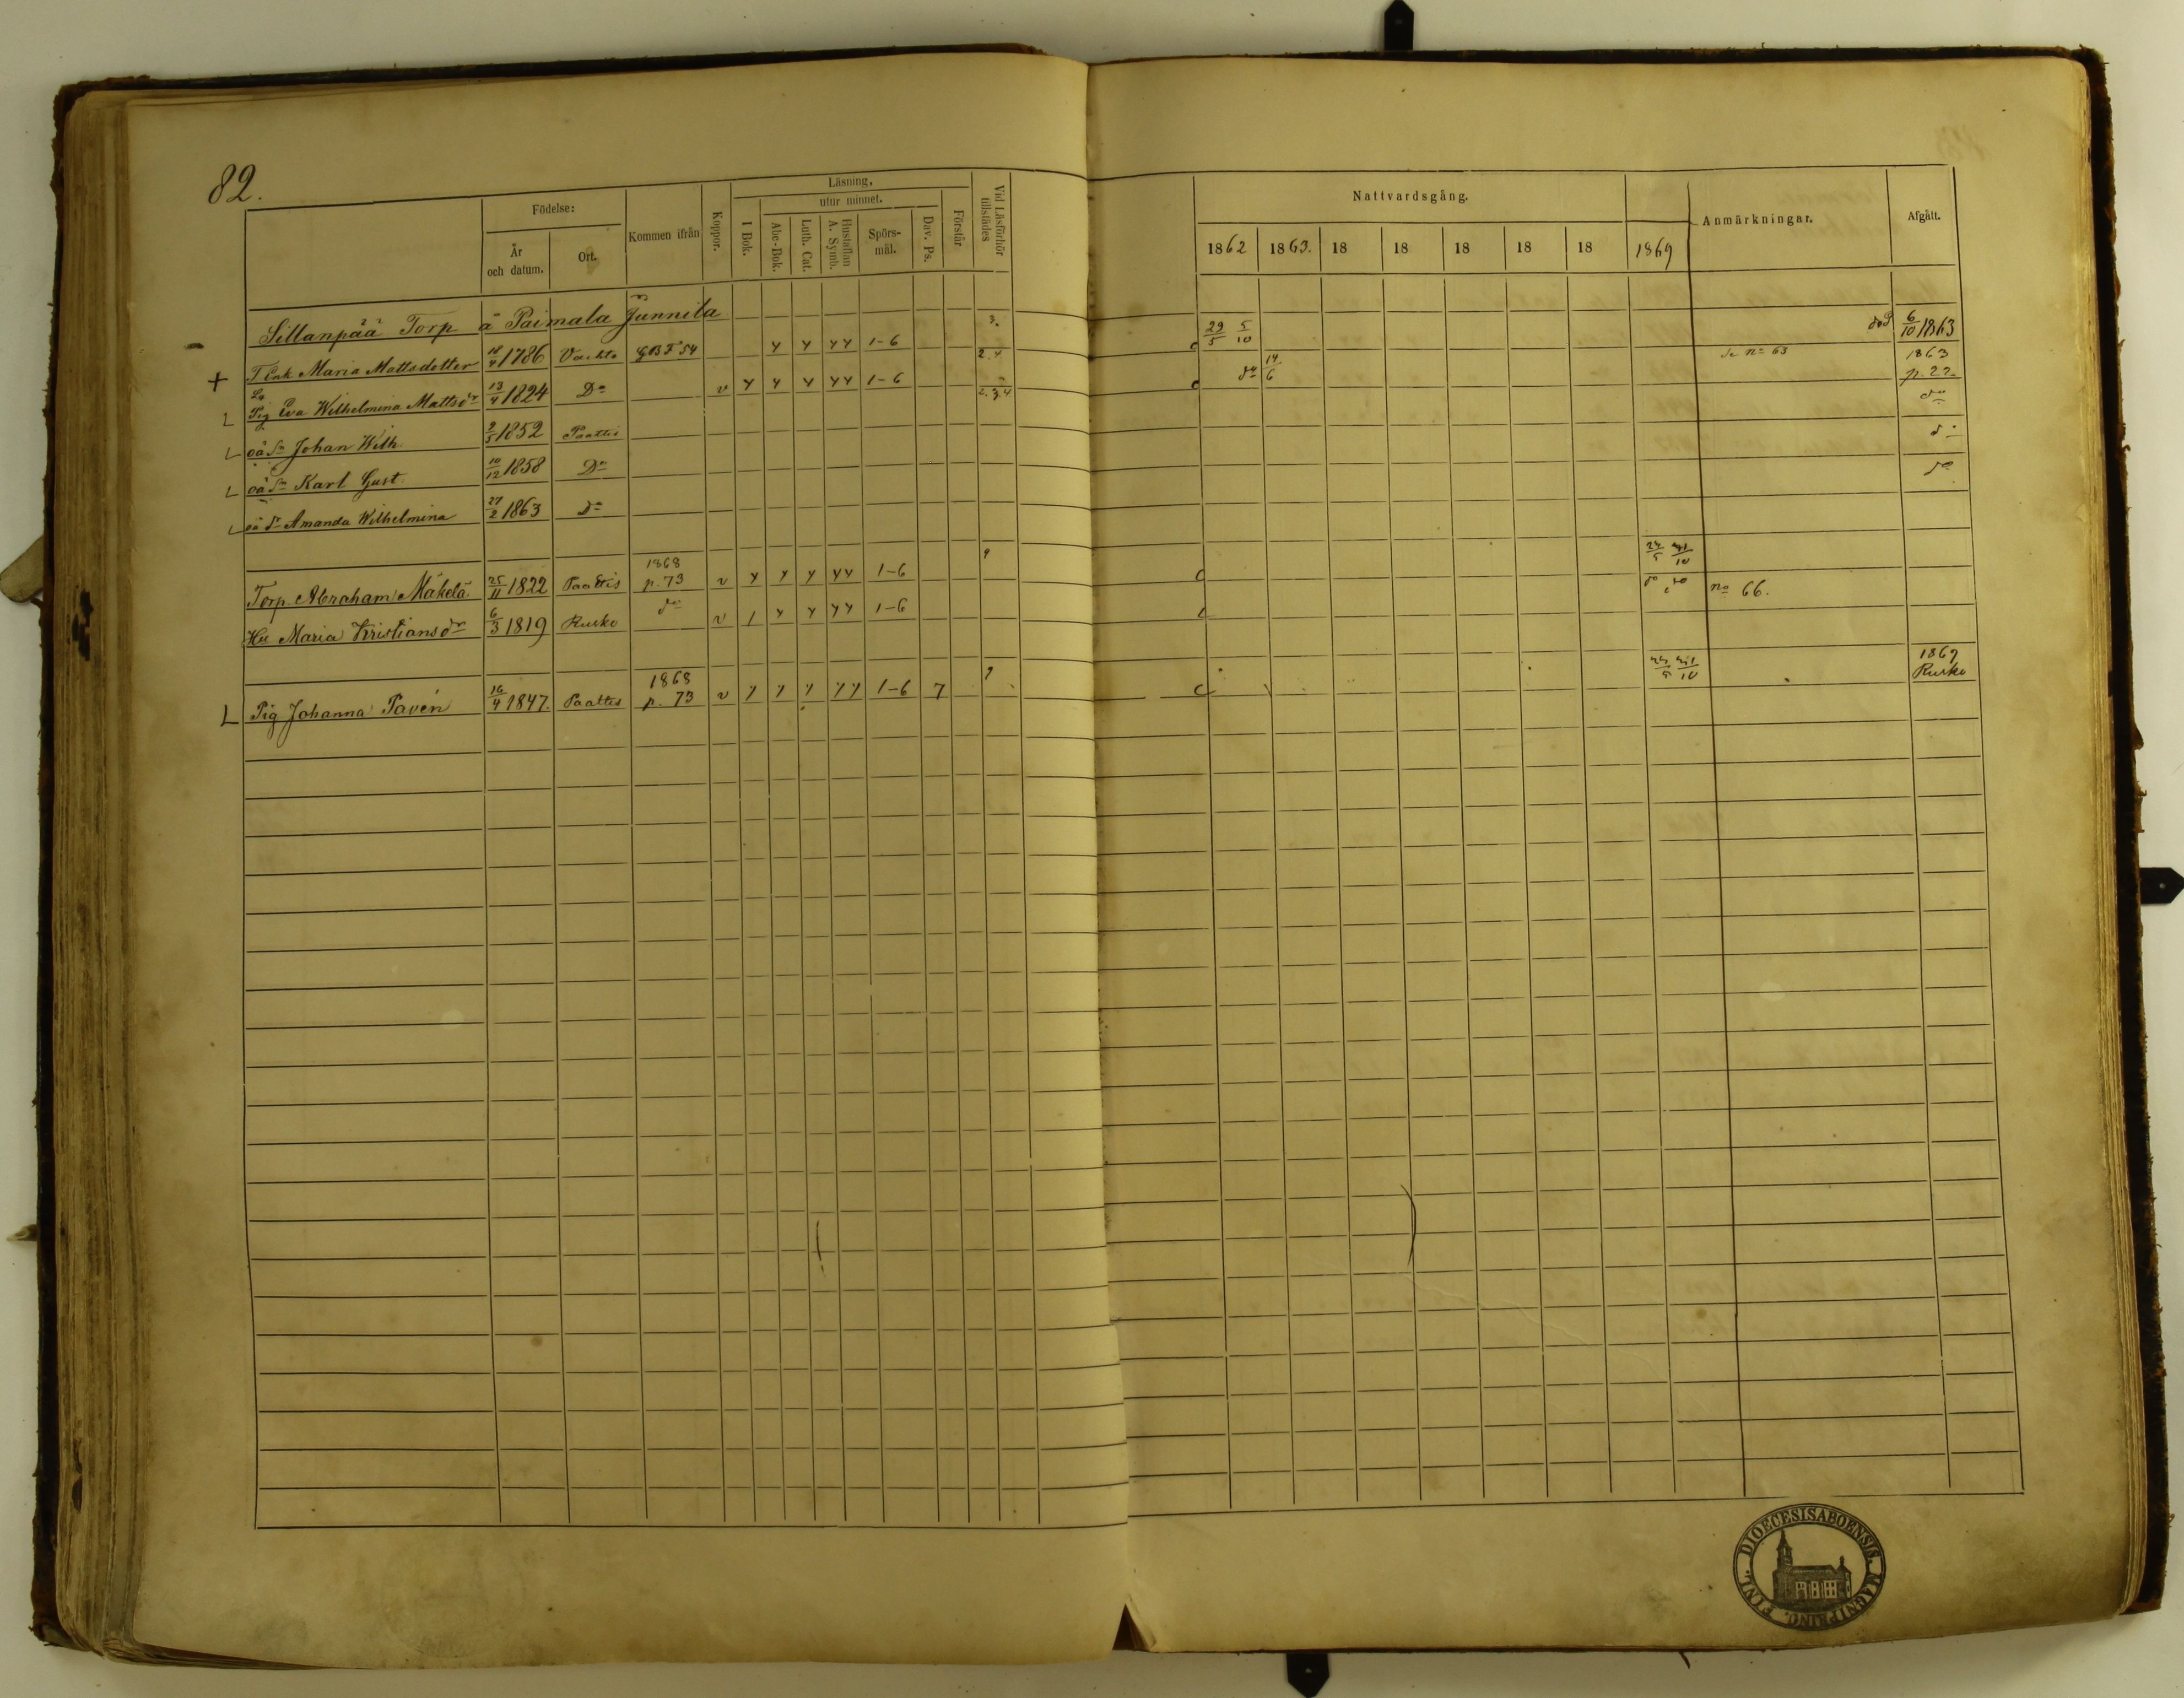 82.
Födelse: Kommen ifrån Koppor. Läsning, Vid Läsförhör tillstädes Nattvardsgång. Anmärkningar. Afgått.
År och datum. Ort. I Bok. utur minnet. Förstår
Abc-Bok. Luth. Cat. Hustaflan A. Symb. Spörsmål. Dav. Ps.
1862 1863. 18 18 18 18 18 1869
Sillanpää Torp å Paimala Junnila
+ T Enk Maria Mattsdotter 18/4 1786 Vachto GBF 54 y y yy 1-6 3. c 29/5 5/10 död 6/10 1863
L Pig Eva Wilhelmina Mattsdr 13/4 1824 Do v y y y yy 1-6 2.4. c do 14/6 Se no 63 1863 p. 22
L oä Sn Johan Wilh. 2/5 1852 Paattis 2.3.4 do
L oä Sn Karl Gust. 10/12 1858 Do do
L oä dr Amanda Wilhelmina 27/2 1863 do do
Torp. Abraham Mäkelä 25/11 1822 Paattis 1868 p. 73 v y y y yy 1-6 9 c
Hu Maria Kristiansdr 6/3 1819 Rusko do v 1 y y yy 1-6 c do no 66.
L Pig Johanna Pavén 16/4 1847. Paattis 1868 p. 73 v y y y yy 1-6 7 9 c 1869 Rusko
DIOECESIS ABOENSIS. MAGNI PRINC. FINL.